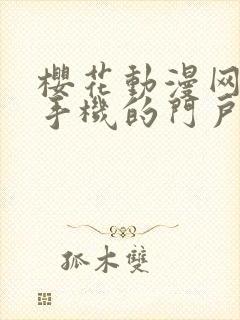 櫻花動漫网
手機的門戶
孤木雙